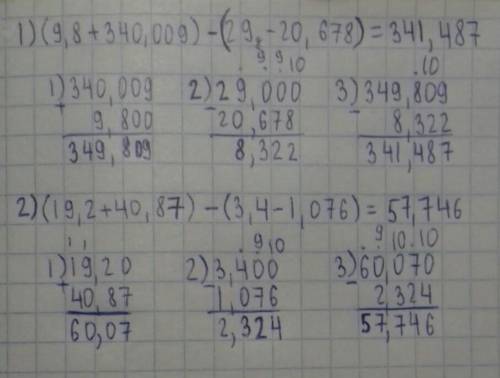 1)(9,8+340,009)-(29,-20,678)=341,487
. 9 9 10 .10
1)340,009 2)29,000 3)349,809
+ 9,800 -20,678 - 8,322
349,809 8,322 341,487
2)(19,2+40,87)-(3,4-1,076)=57,746
1 1 . 9 10 . 9 10.10
1)19,20 2)3,400 3)60,070
+40,87 -1,076 - 2,324
60,07 2,324 57,746